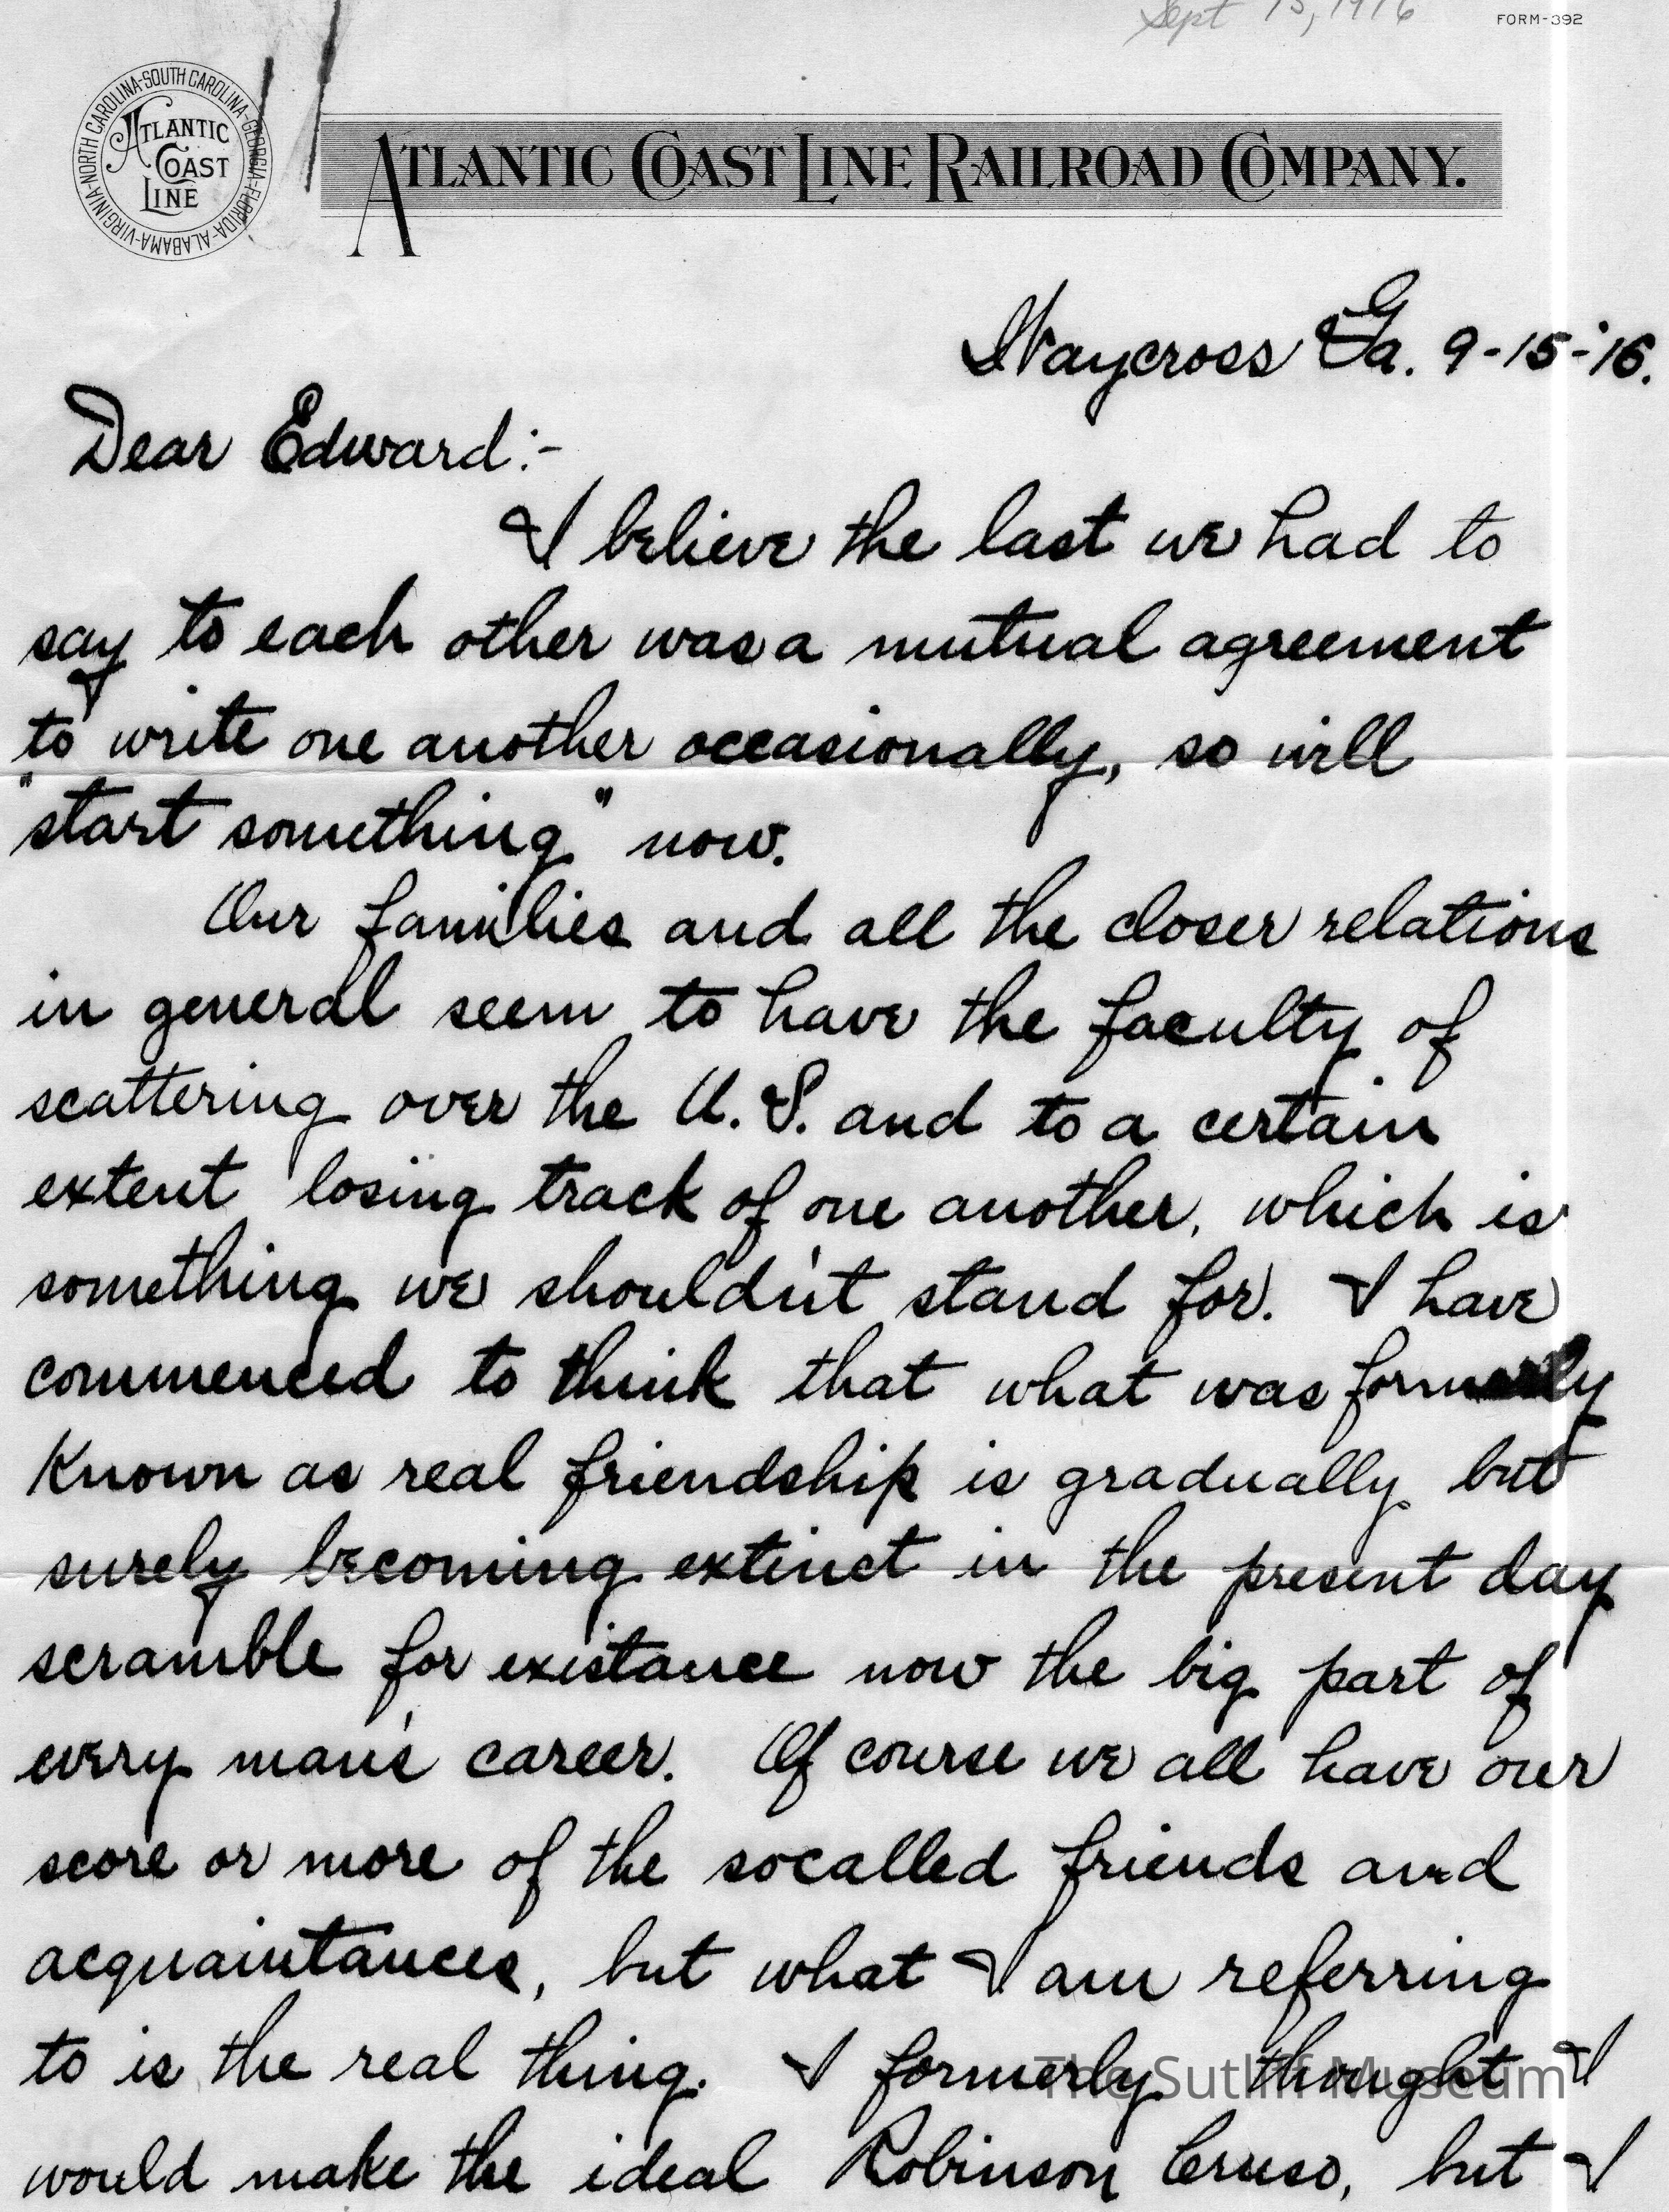 Sept 15, 1916
FORM-392
NORTH CAROLINA-SOUTH CAROLINA-GEORGIA-FLORIDA-ALABAMA-VIRGINIA-
ATLANTIC
COAST
LINE
ATLANTIC COAST LINE RAILROAD COMPANY.
Waycross Ga. 9-15-'16.
Dear Edward:-
I believe the last we had to
say to each other was a mutual agreement
to write one another occasionally, so will
"start something" now.
Our families and all the closer relations
in general seem to have the faculty of
scattering over the U.S. and to a certain
extent losing track of one another, which is
something we should'nt stand for. I have
commenced to think that what was formerly
known as real friendship is gradually but
surely becoming extinct in the present day
scramble for existance now the big part of
every man's career. Of course we all have our
score or more of the socalled friends and
acquaintances, but what I am referring
to is the real thing. I formerly thought I
would make the ideal Robinson Cruso, but I
The Sutliff Museum